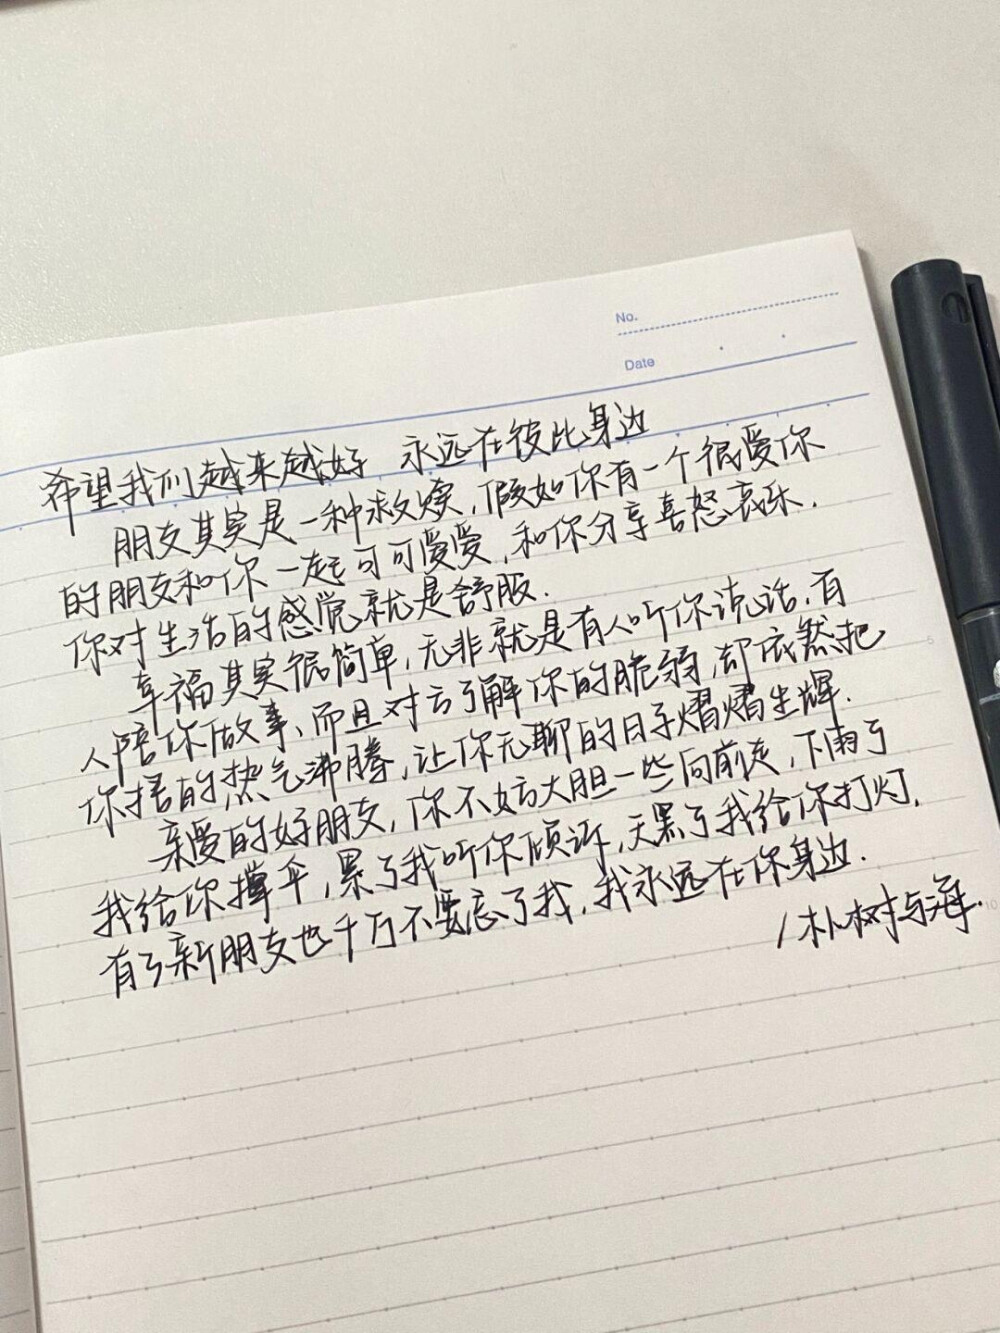 No.
Date
希望我们越来越好 永远在彼此身边
朋友其实是一种救赎,假如你有一个很爱你
的朋友和你一起可可爱爱,和你分享喜怒哀乐.
你对生活的感觉就是舒服.
幸福其实很简单,无非就是有人听你说话,有
人陪你做事、而且对方了解你的脆弱,却依然把
你捂的热气沸腾,让你无聊的日子熠熠生辉.
亲爱的好朋友,你不妨大胆一些向前走,下雨了
我给你撑伞,累了我听你倾诉,天黑了我给你打灯,
有了新朋友也千万不要忘了我,我永远在你身边.
/朴树与海.